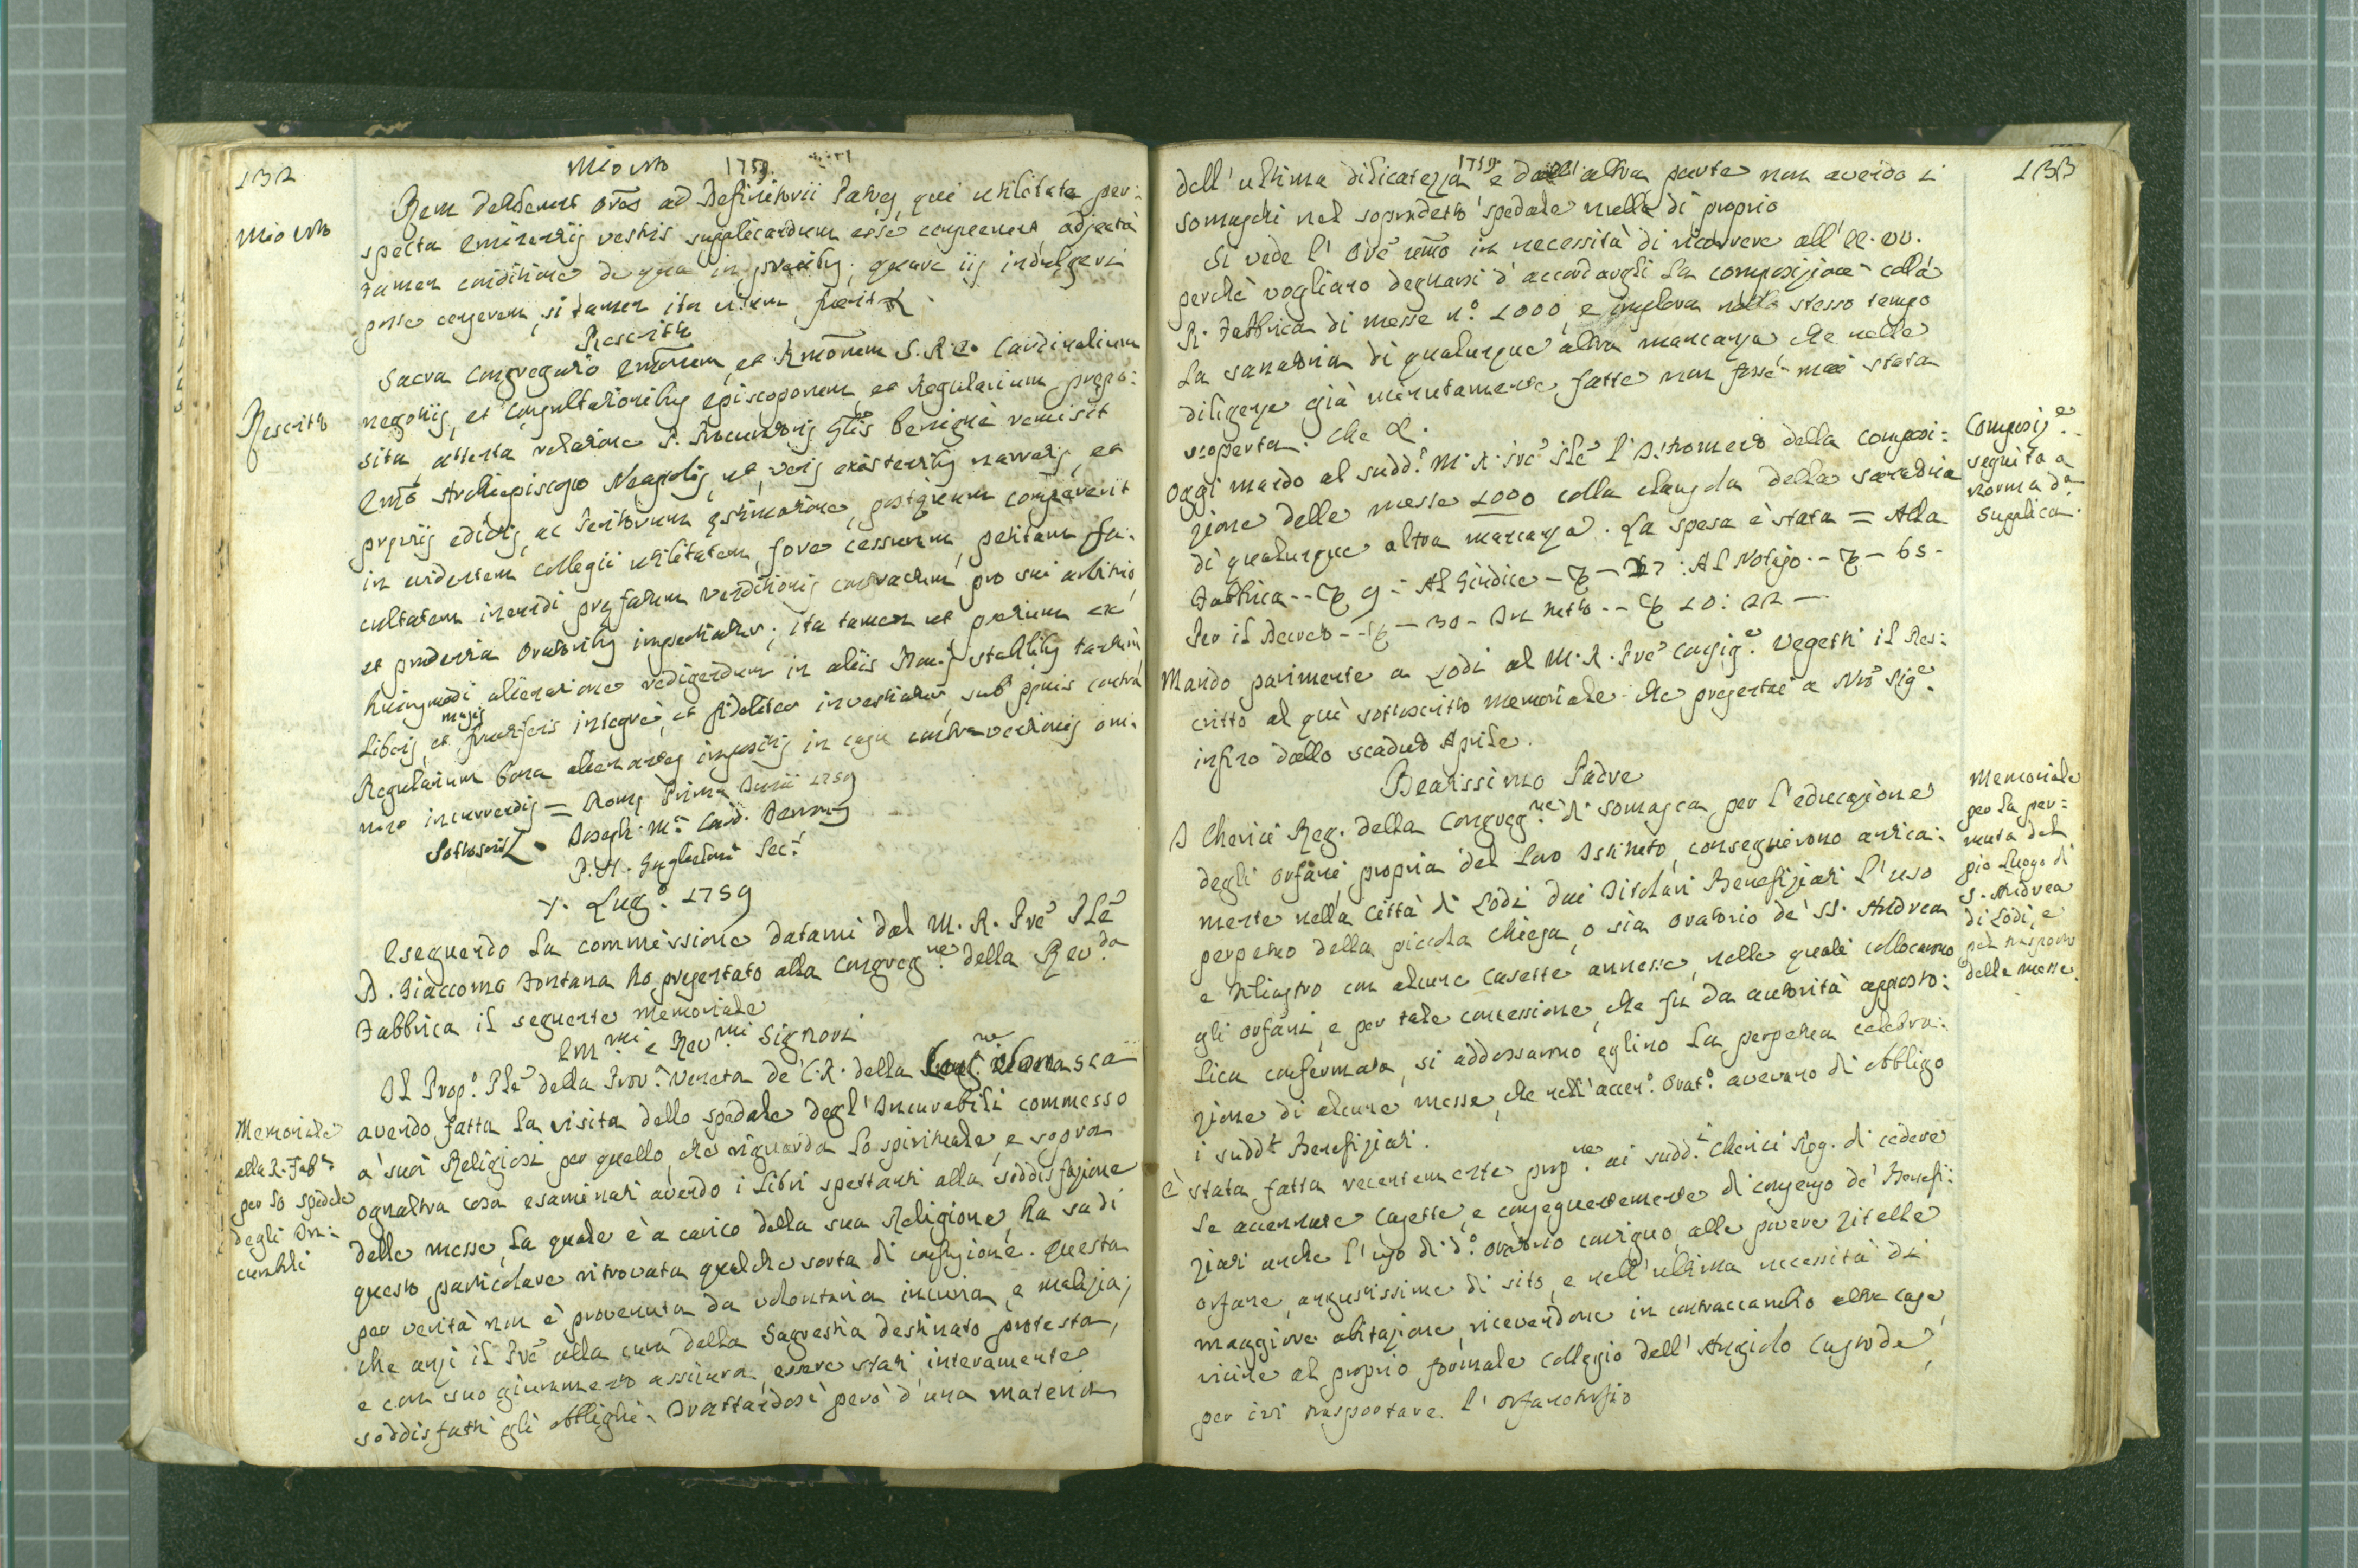 132
Mio Voto 1759.
Mio Voto
Rem detulerunt Ores ad Definitorii Patres, qui utilitate per:
specta Eminentiis vestris supplicandum esse censuerunt adjecta
tamen conditione de qua in precibus; quare iis indulgeri
posse censerem, si tamen ita visum fuerit &.
Rescritto
Rescritto
Sacra Congregatio Emorum, et Rmorum S. R. E. Cardinalium
negotiis, et Consultationibus Episcoporum, et Regularium prepo:
sita, attenta relatione P. Procuratoris Glis benigne remisit
Emo Archiepiscopo Neapolis, ut, veris existentibus narratis, et
previis edictis, ac Peritorum estimatione, postquam compererit
in evidentem Collegii utilitatem fore cessurum, petitam fa:
cultatem ineundi prefatum venditionis contractum pro sui arbitrio,
et prudentia Oratoribus impertiatur; ita tamen ut pretium ex
huiusmodi alienatione redigendum in aliis bonis stabilibus tantum
liberis, et fructiferis integre, et fideliter investiatur, sub penis contra
magis
Regularium bona alienantes impositis in casu contraventionis om:
nino incurrendis = Rome Prima Junii 1759
Sottoscritt. Joseph M.a Card. Ferroni
P. A. Guglielmi Sec.
7. Lug.o 1759
Eseguendo la commissione datami dal M. R. Pre Ple
D. Giaccomo Fontana ho presentato alla Congreg.ne della Rev.da
Fabbrica il seguente Memoriale
Em.mi e Rev.mi Signori
Il Prop.o Ple della Prov.a Veneta de' C. R. della Cong.ne Somasca
Memoriale
alla R. Fab.a
per lo spedale
degli In:
curabili
avendo fatta la visita dello spedale degl' Incurabili commesso
a' suoi Religiosi per quello, che riguarda lo spirituale, e sopra
ognaltra cosa esaminati avendo i libri spettanti alla soddisfazione
delle messe, la quale è a carico della sua Religione, ha su di
questo particolare ritrovata qualche sorta di confusione. Questa
per verità non è provenuta da volontaria incuria, e malizia;
che anzi il Pre alla cura della Sagrestia destinato protesta,
e con suo giuramento assicura, essere stati interamente
soddisfatti gli obblighi. Trattandosi però d'una materia
133
1759
dell'ultima dilicatezza e dall'altra parte non avendo i
somaschi nel sopradetto spedale nulla di proprio
Si vede l'Ore umo in necessità di ricorrere all'EE. VV.
perchè vogliano degnarsi d'accordargli la composizione colla
R. Fabbrica di messe n.o 1000, e implora nello stesso tempo
la sanatoria di qualunque altra mancanza che nelle
diligenze già minutamente fatte non fosse mai stata
scoperta. Che &.
Oggi mando al sudd.o M. R. Pre Ple l'Istromento della Composi:
zione delle messe 1000 colla clausola della sanatoria
di qualunque altra mancanza. La spesa è stata = Alla
Fabbrica -- 9 - Al Giudice - - 27 : Al Notajo -- - 65 -
Per il Decreto -- - 30 - In tutto -- 10: 22 -
Composiz.e
seguita a
norma d.a
Supplica.
Mando parimente a Lodi al M. R. Pre Consig.e Vegetti il Res:
critto al quì sottoscritto memoriale che presentai a Nro Sig.e
infino dallo scaduto Aprile.
Beatissimo Padre
Memoriale
per la per:
muta del
pio Luogo di
S. Andrea
di Lodi, e
pel trasporto
delle messe.
I Cherici Reg. della Congreg.ne di Somasca per l'educazione
degli orfani propria del loro Istituto, conseguirono antica:
mente nella Città di Lodi dai Titolari Benefiziati l'uso
perpetuo della piccola Chiesa, o sia oratorio de' SS. Andrea
e Filiastro con alcune casette annesse, nelle quali collocarono
gli orfani, e per tale concessione, che fu da autorità apposto:
lica confermata, si addossarono eglino la perpetua celebra:
zione di alcune messe, che nell'accen.o Orat.o avevano di obbligo
i sudd.ti Benefiziati.
È stata fatta recentemente prop.ne ai sudd.i Cherici Reg. di cedere
le accennate casette, e conseguentemente di consenso de' Benefi:
ziati anche l'uso di d.o oratorio contiguo, alle povere zitelle
orfane, angustissime di sito, e nell'ultima necessità di
maggiore abitazione, ricevendone in contraccambio altre case
vicine al proprio formale Collegio dell'Angiolo Custode,
per ivi trasportare l'orfanotrofio